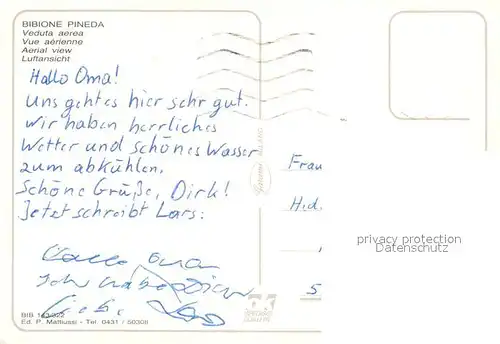 BIBIONE PINEDA
Veduta aerea
Vue aérienne
Aerial view
Luftansicht
Hallo Oma!
Uns geht es hier sehr gut.
Wir haben herrliches
Wetter und schönes Wasser
zum abkühlen.
Schöne Grüße, Dirk!
Jetzt schreibt Lars:
Hallo Oma
Ich habe Dich
Lieb. Lars
Frau
Hid.
5
privacy protection
Datenschutz
Ed. P. Mattiussi - Tel. 0431 / 50308